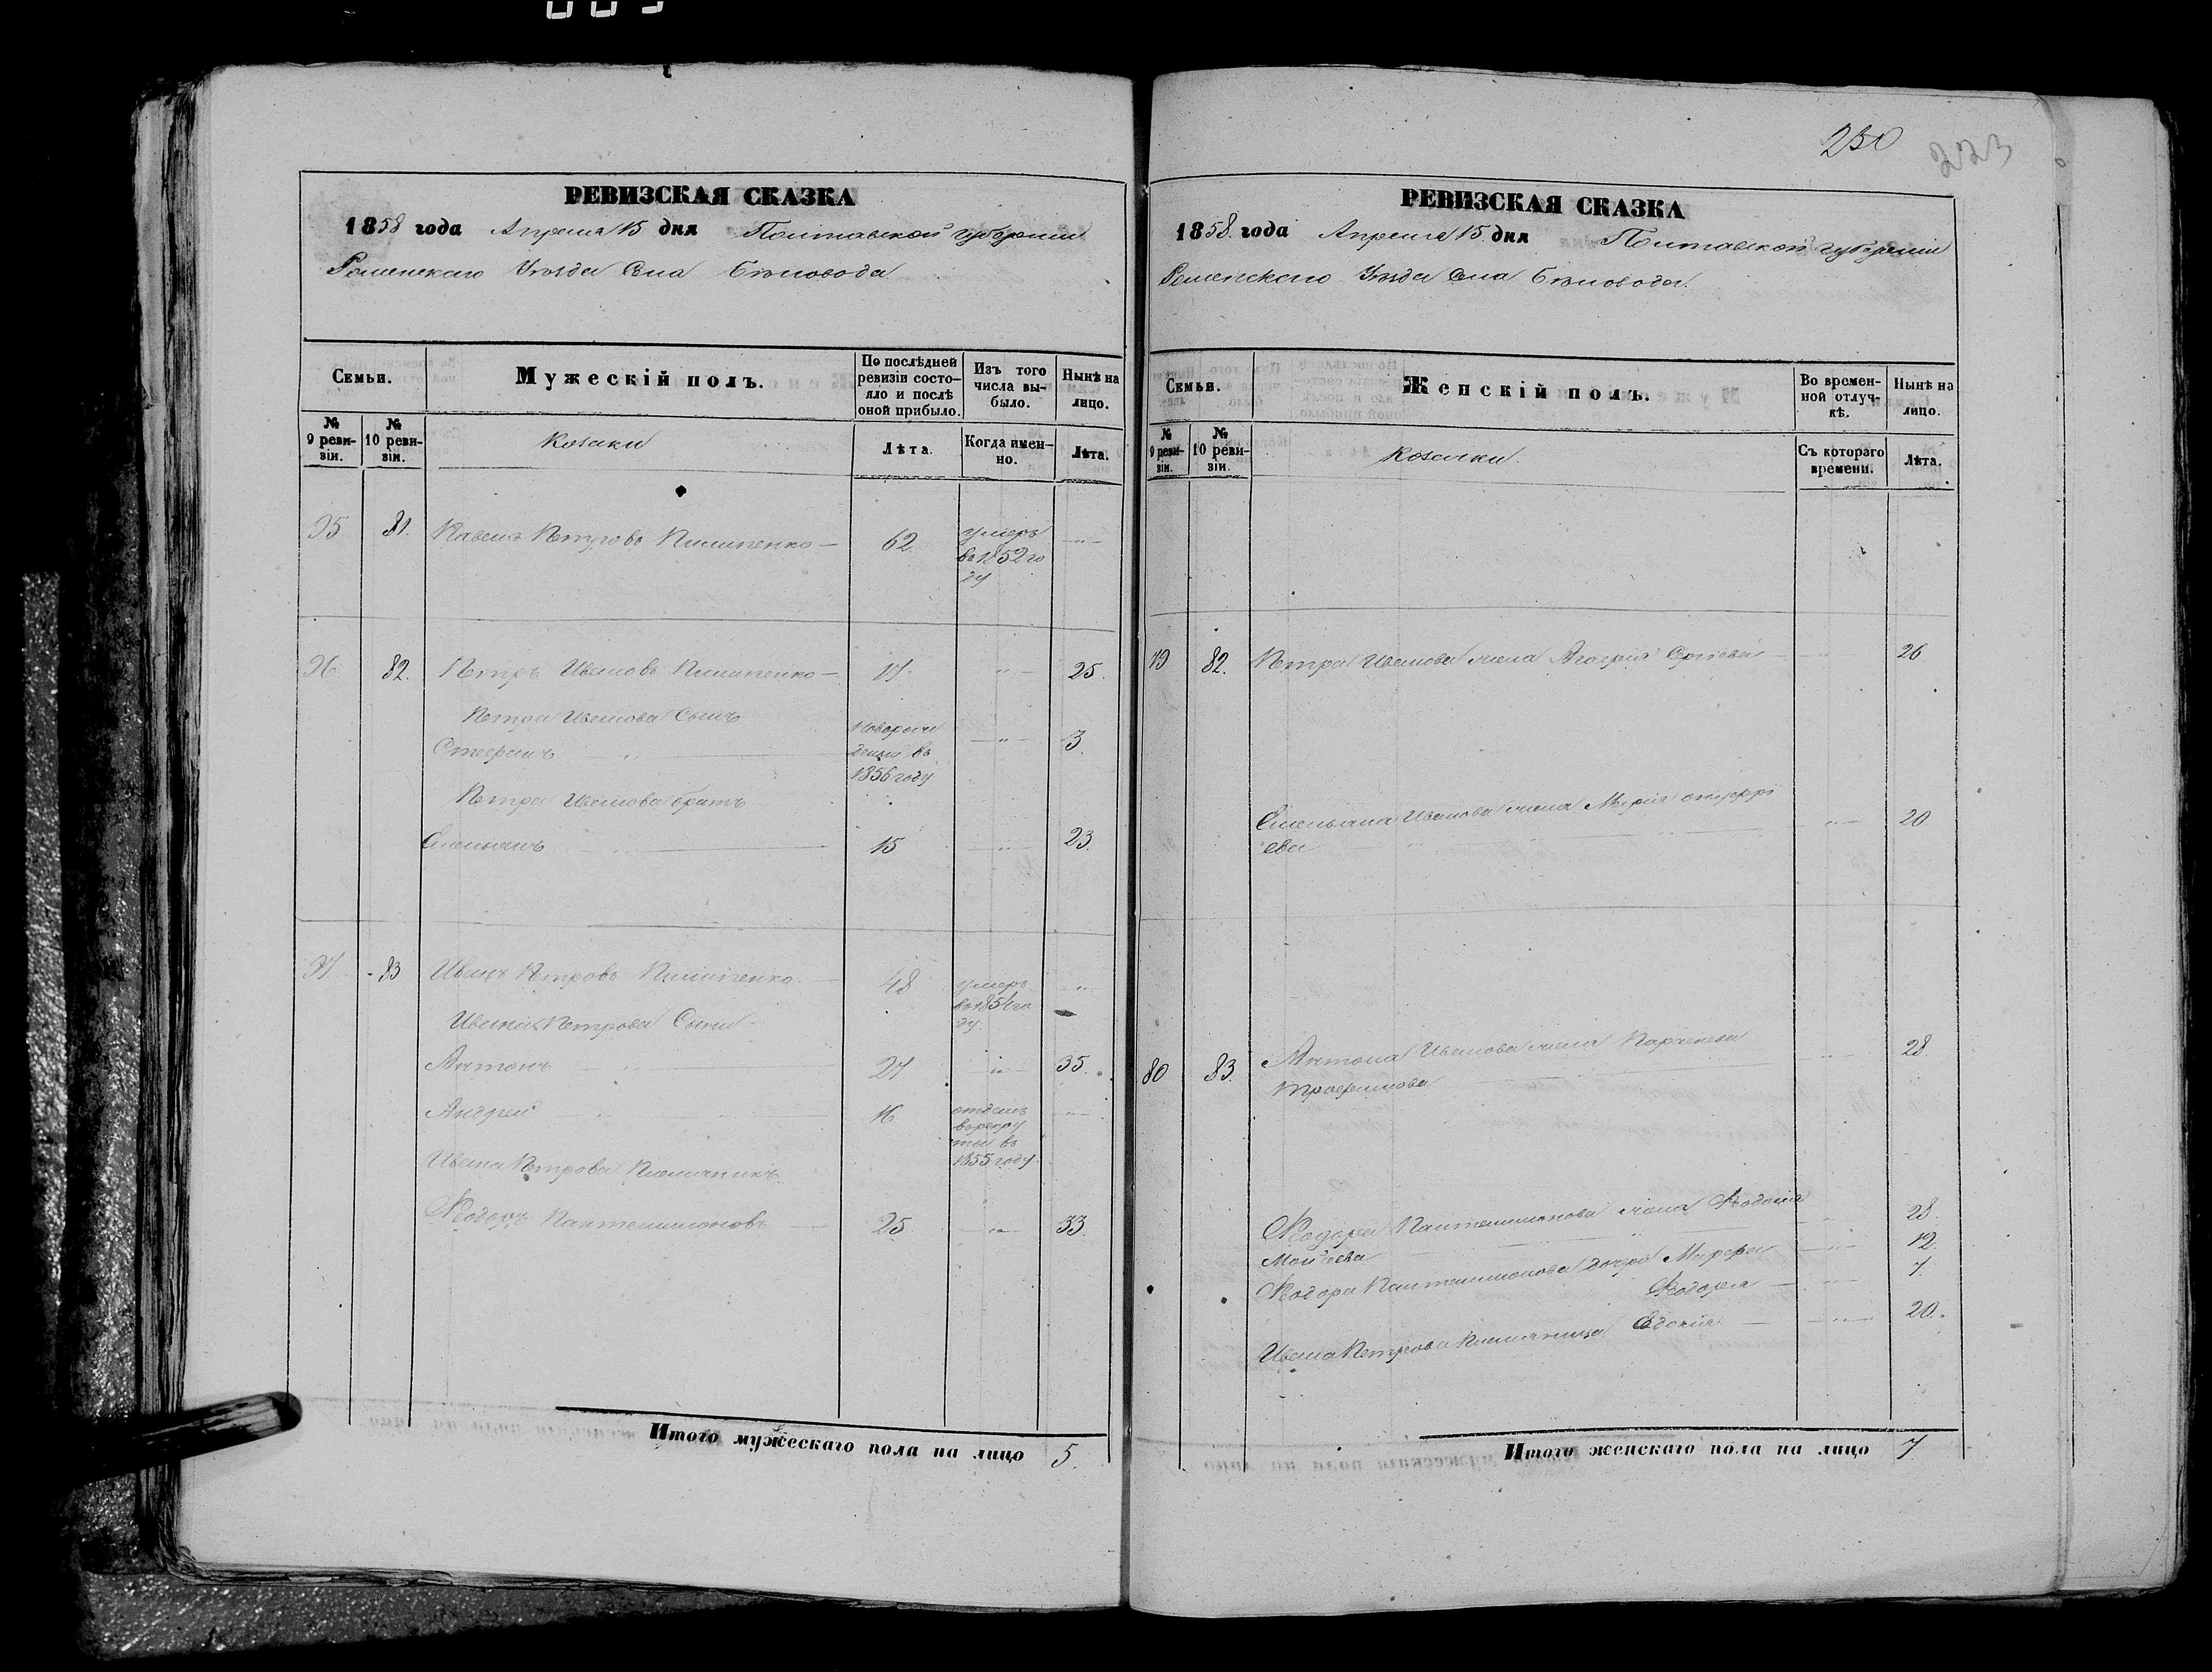 230
223
РЕВИЗСКАЯ СКАЗКА
1858 года Апреля 15 дня Полтавской губернии
Роменскаго Уѣзда Села Бѣловода
Семьи.
Мужескій полъ.
По послѣдней ревизіи состо-
яло и послѣ
оной прибыло.
Изъ того
числа вы-
было.
Нынѣ на
лицо.
№
9 реви-
зіи.
№
10 реви-
зіи.
Козаки
Лѣта.
Когда имен-
но.
Лѣта.
95 81. Павелъ Петровъ Пилипенко — 62. умеръ — „ —
въ 1852 го
ду
96 82. Петръ Ивановъ Пилипенко — 17 — „ — 25.
Петра Иванова Сынъ
Стефанъ „ — новорож
денъ въ
1856 году — „ — 3.
Петра Иванова братъ
Емельянъ — 15 — „ — 23.
97 83 Иванъ Петровъ Пилипенко — 48 умеръ „
въ 1854 го
ду.
Ивана Петрова Сыны
Антонъ „ — 27 „ — 35.
Андрей — „ — 16 отданъ — „ —
въ рекру
ты въ
1855 году
Ивана Петрова Племянникъ
Ѳеодоръ Пантелимоновъ — 25 — „ — 33.
Итого мужескаго пола на лицо 5.
РЕВИЗСКАЯ СКАЗКА
1858. года Апреля 15. дня Полтавской губернии
Роменскаго Уѣзда Села Бѣловода.
Семьи.
Женскій полъ.
Во времен-
ной отлуч-
кѣ.
Нынѣ на
лицо.
№
9 реви-
зіи.
№
10 реви-
зіи.
Козачки.
Съ котораго
времени.
Лѣта.
79 82. Петра Иванова жена Агафія Сергіева — „ 26
Емельяна Иванова жена Марія онуфрі
ева — „ — 20
80 83. Антона Иванова жена Параскева
Трофимова — „ — 28.
Ѳеодора Пантелимонова жена Ѳеодосія
Моисѣева — „ 28.
Ѳеодора Пантелимонова дочери Марфа — „ — 12.
Ѳеодора — „ — 7.
Ивана Петрова племянница Евдокія — „ — 20.
Итого женскаго пола на лицо 7